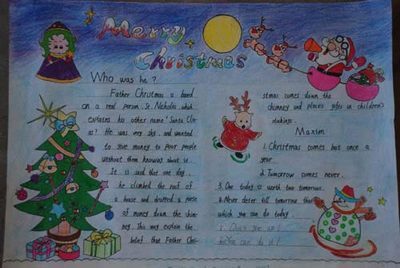 Merry
Christmas
Who was he?
Father Christmas is based
on a real person, St. Nicholas which
explains his other name "Santa Cla-
us". He was very shy and wanted
to give money to poor people
without them knowing about it.
It is said that one day,
he climbed the roof of
a house and dropped a purse
of money down the chim-
ney. This may explain the
belief that Father Chri-
stmas comes down the
chimney and places gifts in children's
stockings.
Maxim
1. Christmas comes but once a
year.
2. Tomorrow comes never.
3. One today is worth two tomorrow.
4. Never defer till tomorrow that
which you can do today.